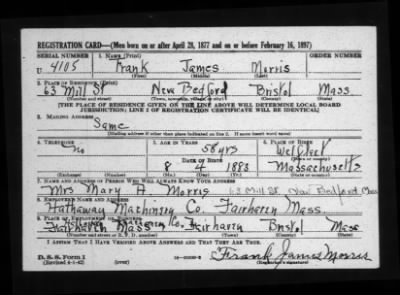 REGISTRATION CARD—(Men born on or after April 28, 1877 and on or before February 16, 1897)
SERIAL NUMBER 1. NAME (Print) ORDER NUMBER
U 4105 Frank James Morris
(First) (Middle) (Last)
2. PLACE OF RESIDENCE (Print)
63 Mill St New Bedford Bristol Mass
(Number and street) (Town, township, village, or city) (County) (State)
[THE PLACE OF RESIDENCE GIVEN ON THE LINE ABOVE WILL DETERMINE LOCAL BOARD
JURISDICTION; LINE 2 OF REGISTRATION CERTIFICATE WILL BE IDENTICAL]
3. MAILING ADDRESS
Same
[Mailing address if other than place indicated on line 2. If same insert word same]
4. TELEPHONE 5. AGE IN YEARS 6. PLACE OF BIRTH
no 58 yrs
DATE OF BIRTH
8 4 1883 Massachusetts
7. NAME AND ADDRESS OF PERSON WHO WILL ALWAYS KNOW YOUR ADDRESS
Mrs Mary A. Morris 63 Mill St. New Bedford Mass
8. EMPLOYER'S NAME AND ADDRESS
Hathaway Machinery Co. Fairhaven Mass.
9. PLACE OF EMPLOYMENT OR BUSINESS
Fairhaven Mass Co. Fairhaven Bristol Mass
(Number and street or R. F. D. number) (Town) (County) (State)
I AFFIRM THAT I HAVE VERIFIED ABOVE ANSWERS AND THAT THEY ARE TRUE.
D. S. S. Form 1
(Revised 4-1-42) Frank James Morris
(Registrant's signature)